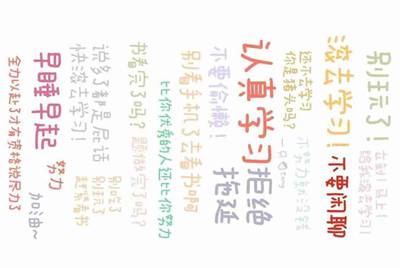 别玩了！
立刻！马上！
给我滚去学习！
滚去学习！
不要闲聊
还不去学习
你是猪头吗？
认真学习
拒绝
拖延
不要偷懒！
别看手机了去看书啊
比你优秀的人还比你努力
书看完了吗？
题做完了吗？
说多了都是屁话
快滚去学习！
别吃了
别玩了
赶紧看书
早睡早起
努力
加油~
全力以赴了才有资格说尽力了